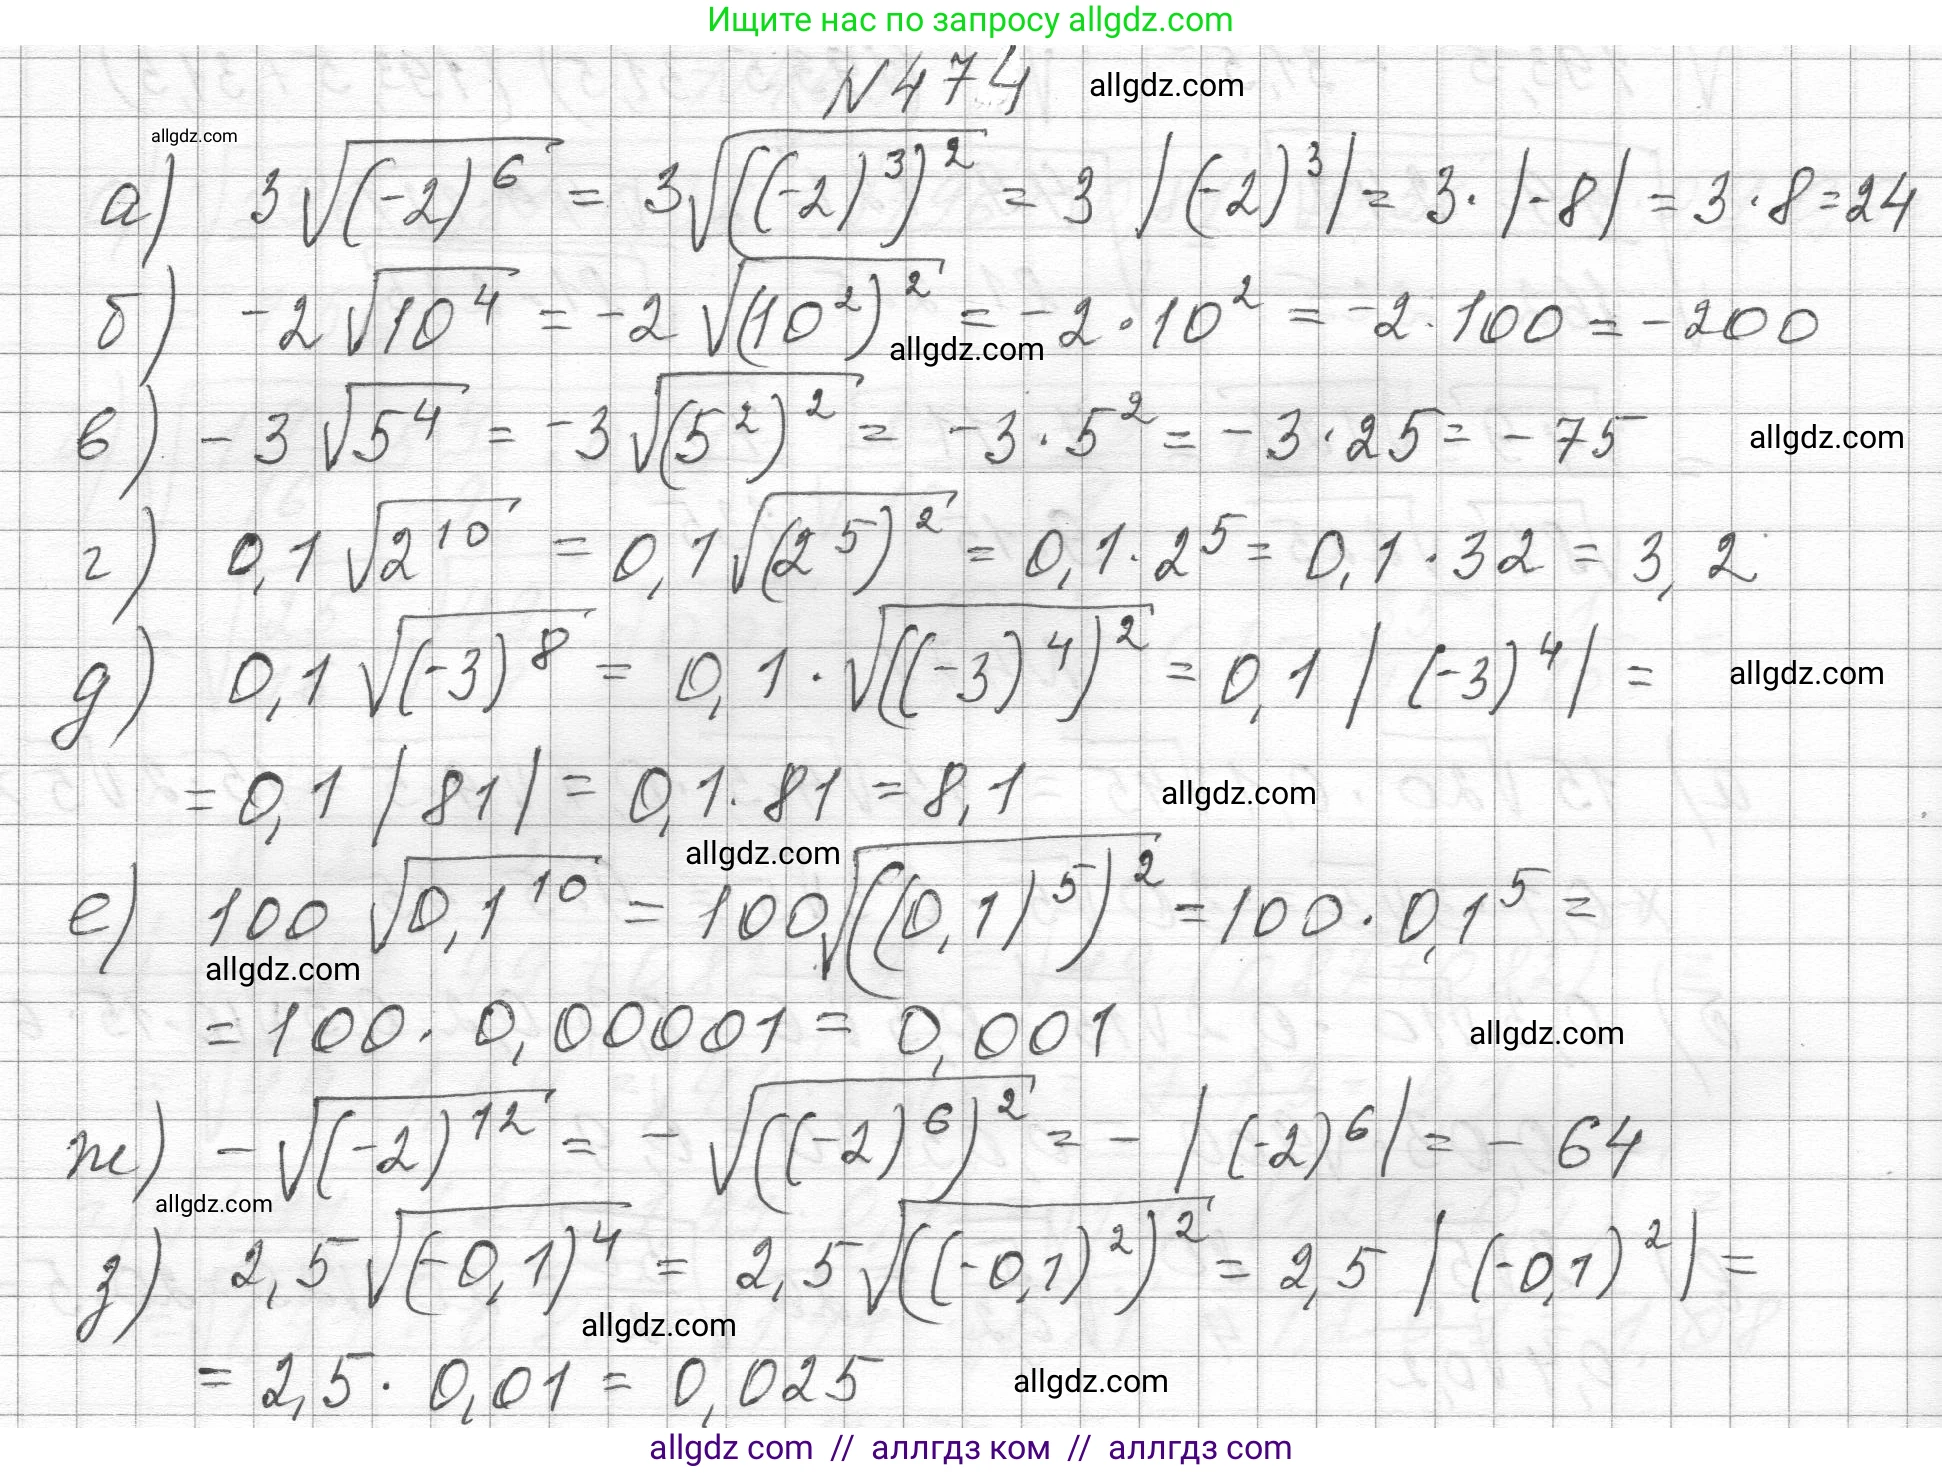 Ищите нас по запросу allgdz.com
N 474 allgdz.com
allgdz.com
а) 3√((-2)^6) = 3√(((-2)^3)^2) = 3 |(-2)^3| = 3 · |-8| = 3 · 8 = 24
б) -2√(10^4) = -2√((10^2)^2) = -2 · 10^2 = -2 · 100 = -200
allgdz.com
в) -3√(5^4) = -3√((5^2)^2) = -3 · 5^2 = -3 · 25 = -75 allgdz.com
г) 0,1√(2^10) = 0,1√((2^5)^2) = 0,1 · 2^5 = 0,1 · 32 = 3,2
д) 0,1√((-3)^8) = 0,1 · √(((-3)^4)^2) = 0,1 |(-3)^4| = allgdz.com
= 0,1 |81| = 0,1 · 81 = 8,1 allgdz.com
allgdz.com
е) 100√(0,1^10) = 100√(((0,1)^5)^2) = 100 · 0,1^5 =
allgdz.com
= 100 · 0,00001 = 0,001 allgdz.com
ж) -√((-2)^12) = -√(((-2)^6)^2) = -|(-2)^6| = -64
allgdz.com
з) 2,5√((-0,1)^4) = 2,5√(((-0,1)^2)^2) = 2,5 |(-0,1)^2| =
allgdz.com
= 2,5 · 0,01 = 0,025 allgdz.com
allgdz com // аллгдз ком // аллгдз com